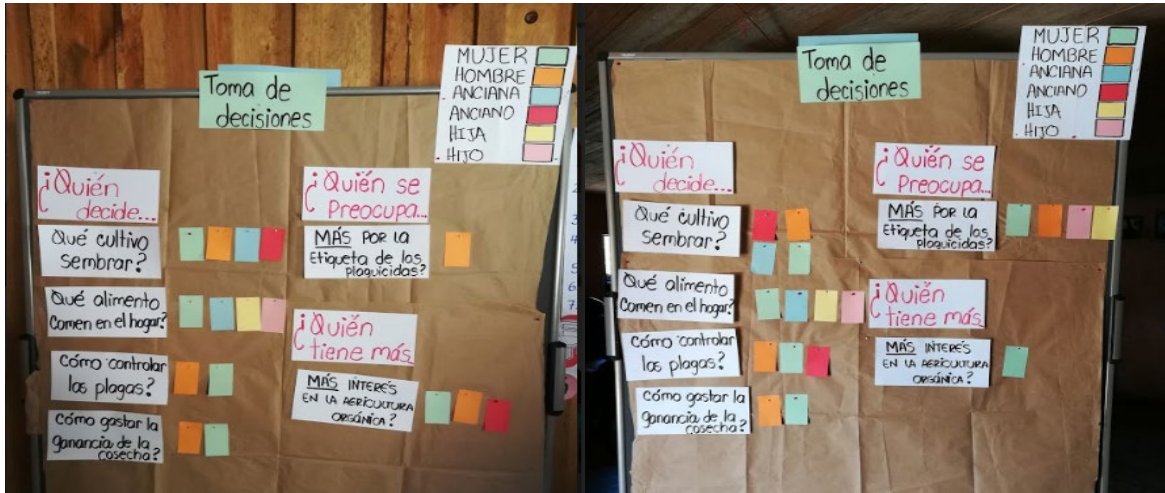 Toma de
decisiones
MUJER
HOMBRE
ANCIANA
ANCIANO
HIJA
HIJO
¿Quién
decide...
Qué cultivo
sembrar?
Qué alimento
comen en el hogar?
Cómo controlar
las plagas?
Cómo gastar la
ganancia de la
cosecha?
¿Quién se
Preocupa...
MÁS POR LA
Etiqueta de los
plaguicidas?
¿Quién
tiene más
MÁS INTERÉS
EN LA AGRICULTURA
ORGÁNICA?
Toma de
decisiones
MUJER
HOMBRE
ANCIANA
ANCIANO
HIJA
HIJO
¿Quién
decide...
Qué cultivo
sembrar?
Qué alimento
comen en el hogar?
Cómo controlar
las plagas?
Cómo gastar la
ganancia de la
cosecha?
¿Quién se
Preocupa...
MÁS POR LA
Etiqueta de los
plaguicidas?
¿Quién
tiene más
MÁS INTERÉS
EN LA AGRICULTURA
ORGÁNICA?